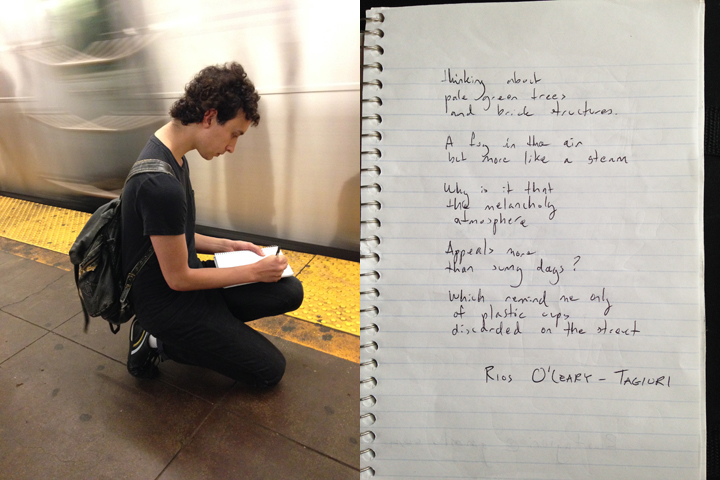 Thinking about
pale green trees
and brick structures.
A fog in the air
but more like a steam
Why is it that
the melancholy
atmosphere
Appeals more
than sunny days?
Which remind me only
of plastic cups
discarded on the street
RIOS O'LEARY - TAGIURI